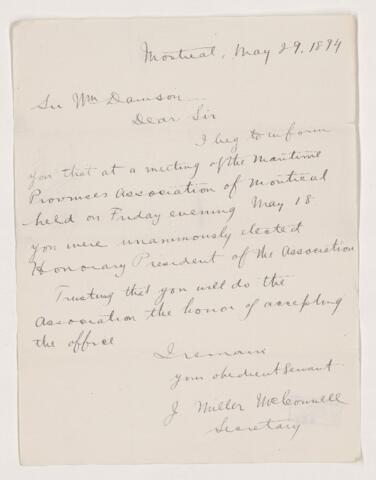 Montreal, May 29, 1894
Sir Wm Dawson
Dear Sir
I beg to inform
you that at a meeting of the Maritime
Provinces Association of Montreal
held on Friday evening May 18
you were unanimously elected
Honorary President of the Association
Trusting that you will do the
Association the honor of accepting
the office
I remain
your obedient Servant
J Miller McConnell
Secretary